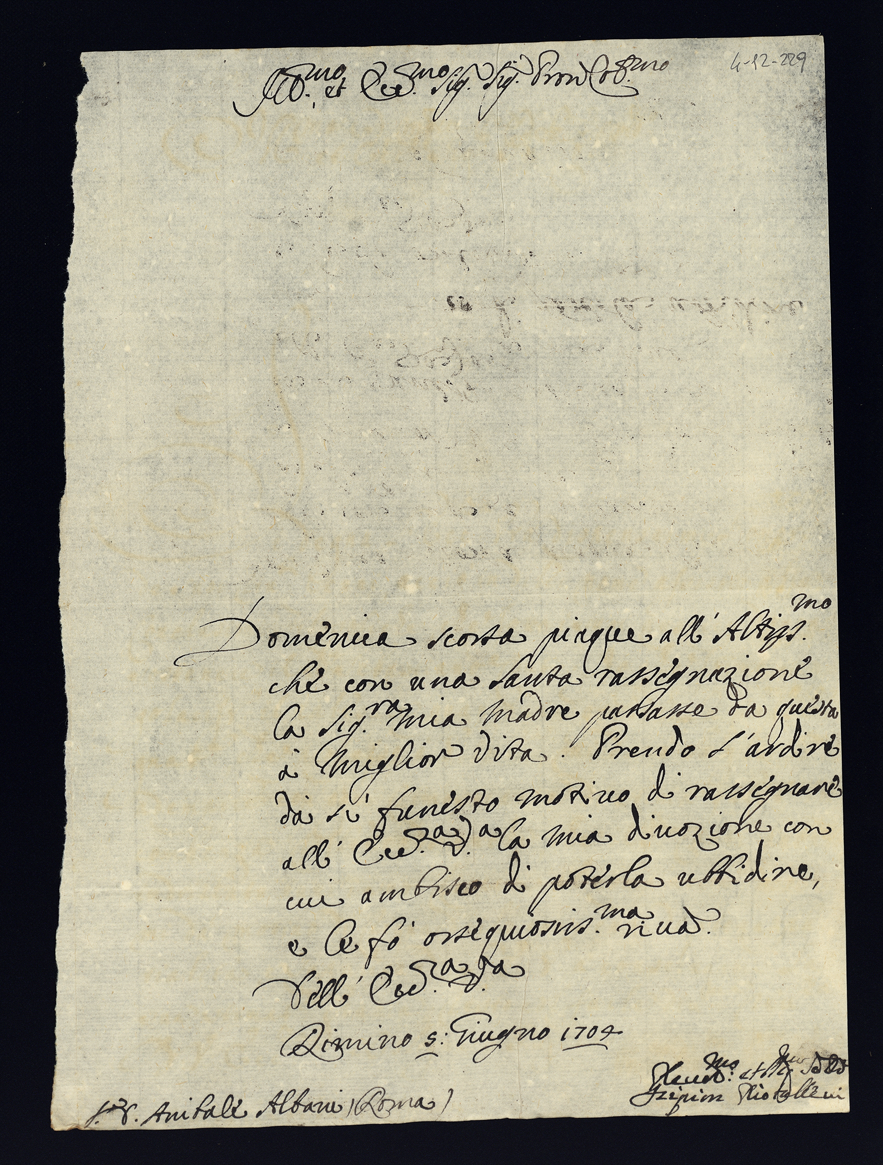 4-12-229
Ill.mo et Ecc.mo Sig. Sig. Pron Col.mo
Domenica scorsa piaque all' Altiss.mo
che con una santa rassegnazione
la Sig.ra mia Madre passasse da questa
à Miglior Vita. Prendo l'ardire
da sì funesto motivo di rassegnare
all' Ecc.za V.a la mia divozione con
cui ambisco di poterla ubbidire,
e le fò ossequiosis.ma riva.
Dell' Ecc.za V.a
Rimino 5: Giugno 1704
S.r D. Anibale Albani (Roma)